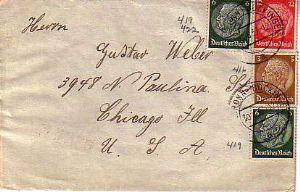 Herrn
Gustav Weber
3948 N. Paulina
Chicago Ill
U. S. A
419
422
419
419
6
12
Deutsches Reich
Deutsches Reich
3
Deutsches Reich
6
Deutsches Reich